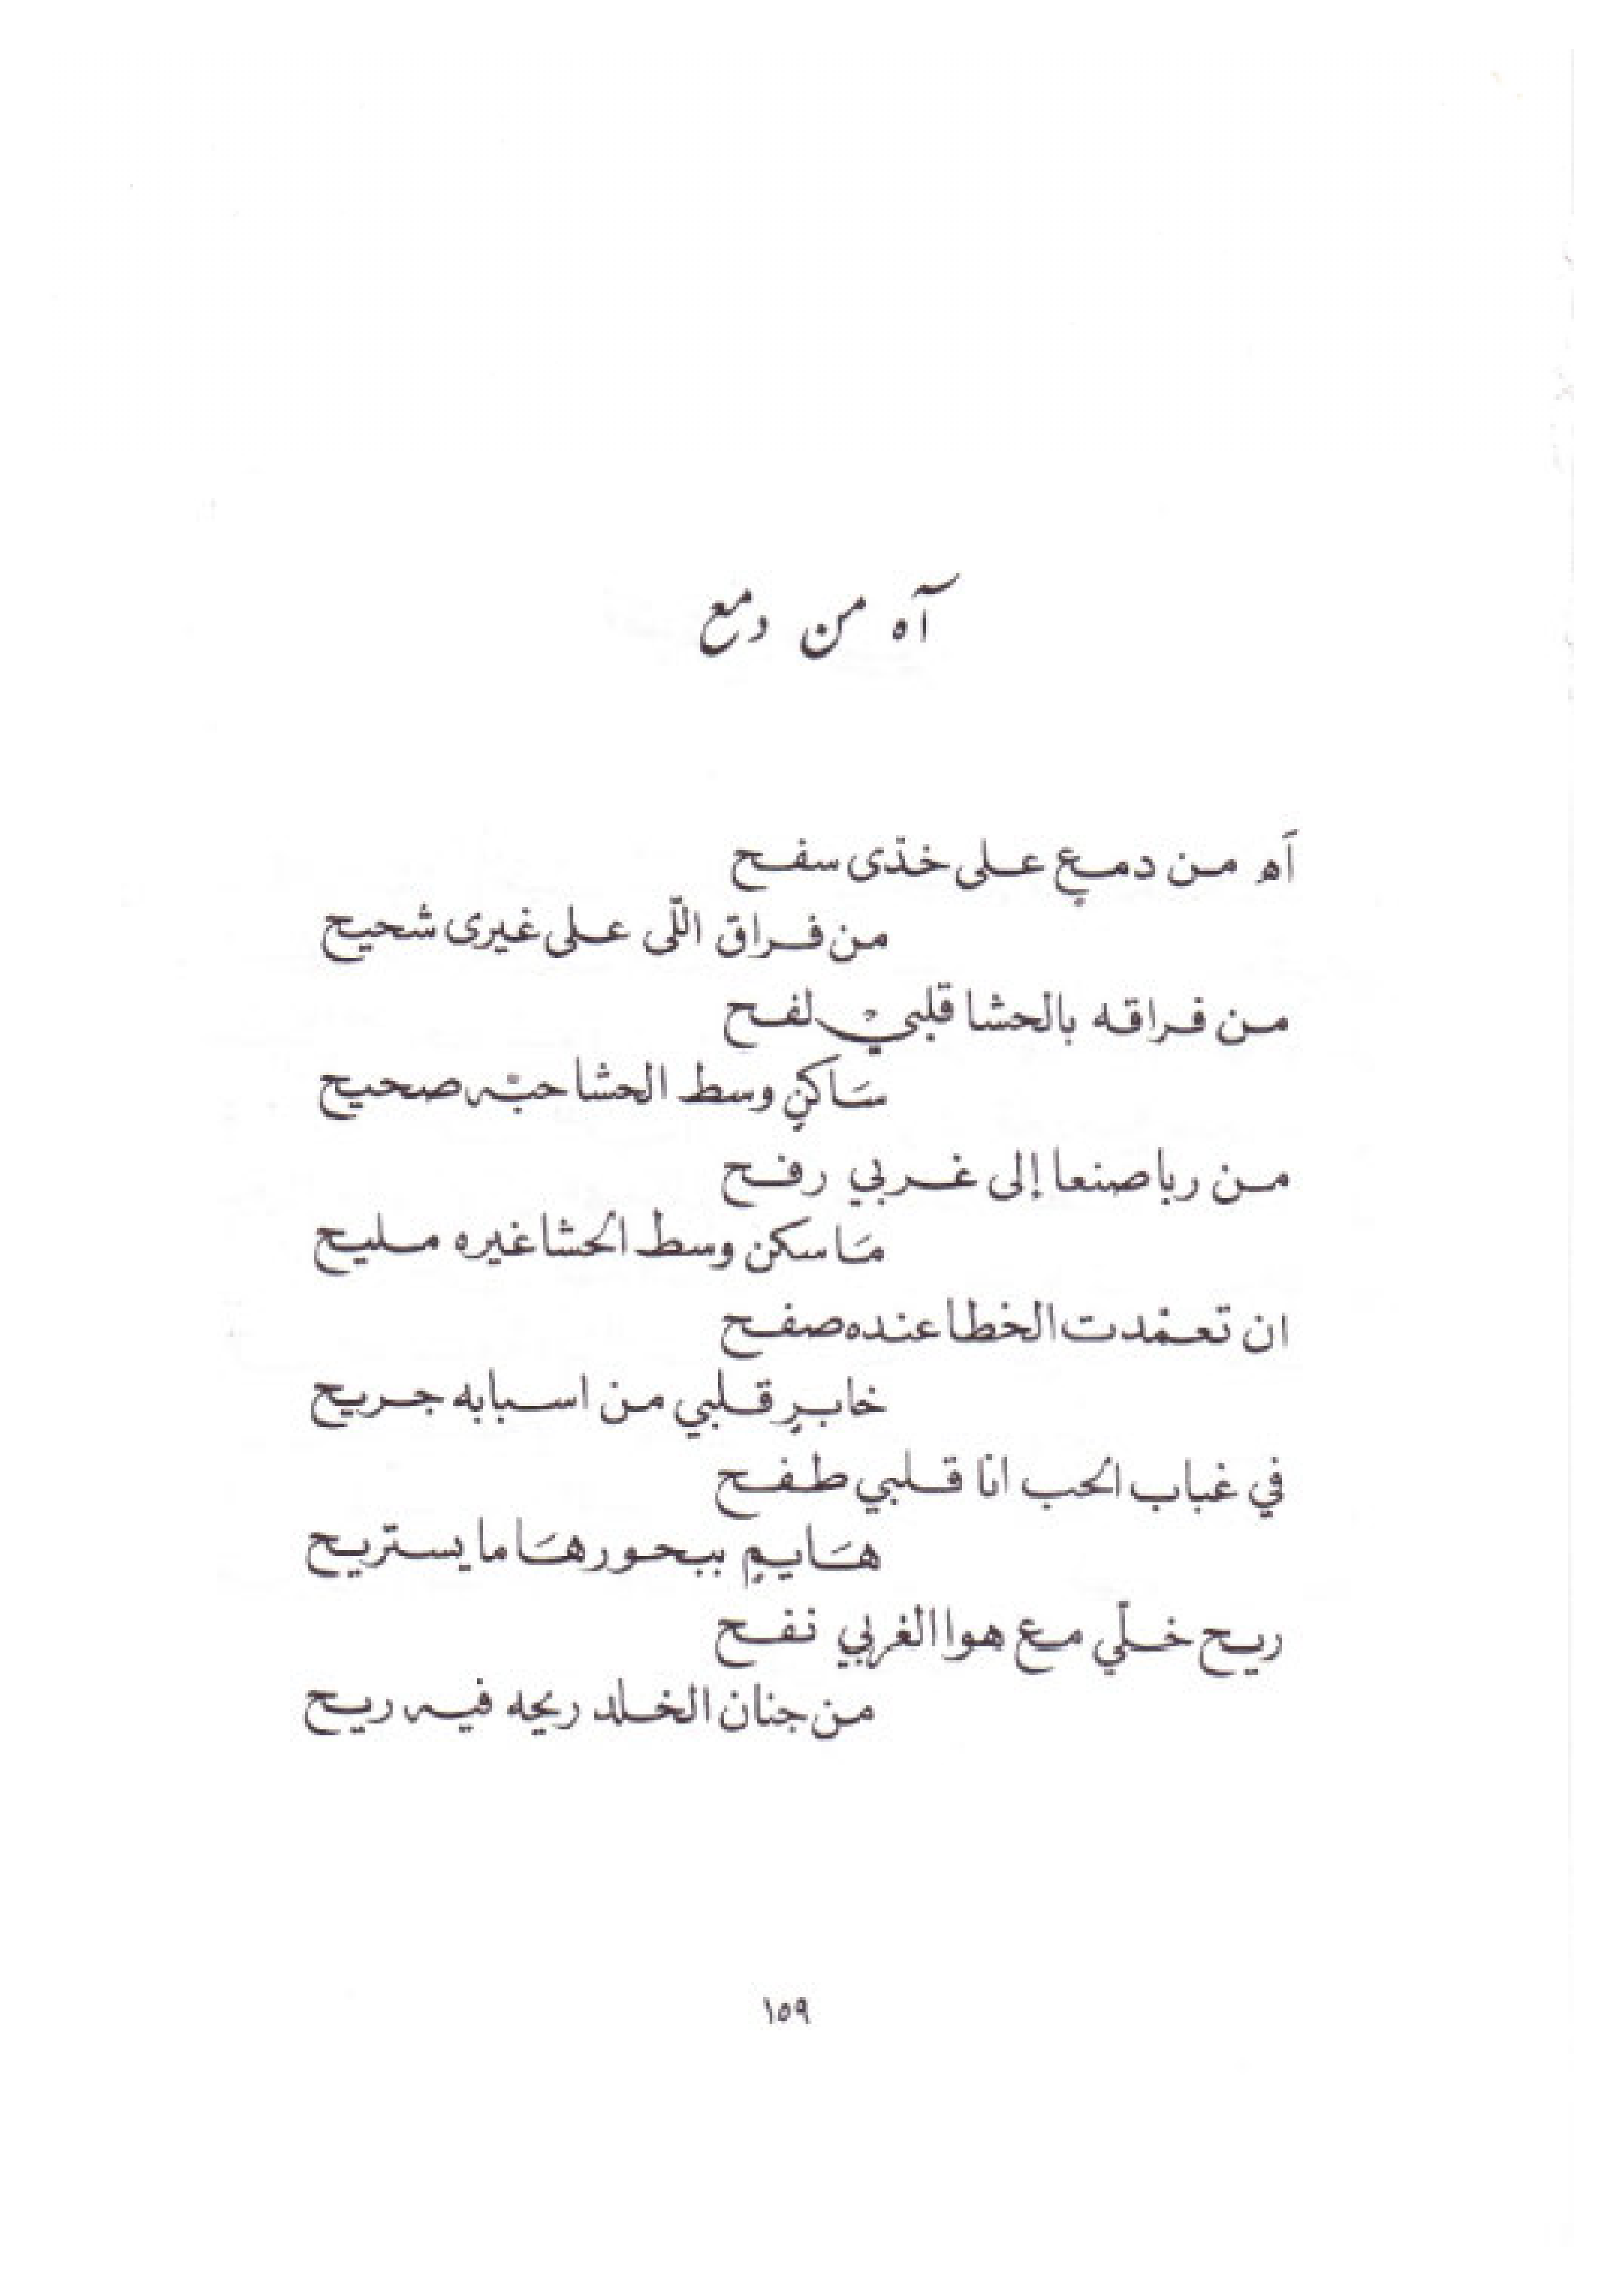 آه من دمع
آه من دمعٍ على خدّى سفح
من فراق اللّى على غيرى شحيح
من فراقه بالحشا قلبيْ لفح
سَاكنٍ وسط الحشا حبّه صحيح
من ربا صنعا إلى غربي رفح
مَا سكن وسط الحشا غيره مليح
ان تعمّدت الخطا عنده صفح
خابرٍ قلبي من اسبابه جريح
في غباب الحب انا قلبي طفح
هَايمٍ ببحورهَا ما يستريح
ريح خلّي مع هوا الغربي نفح
من جنان الخلد ريحه فيه ريح
١٥٩